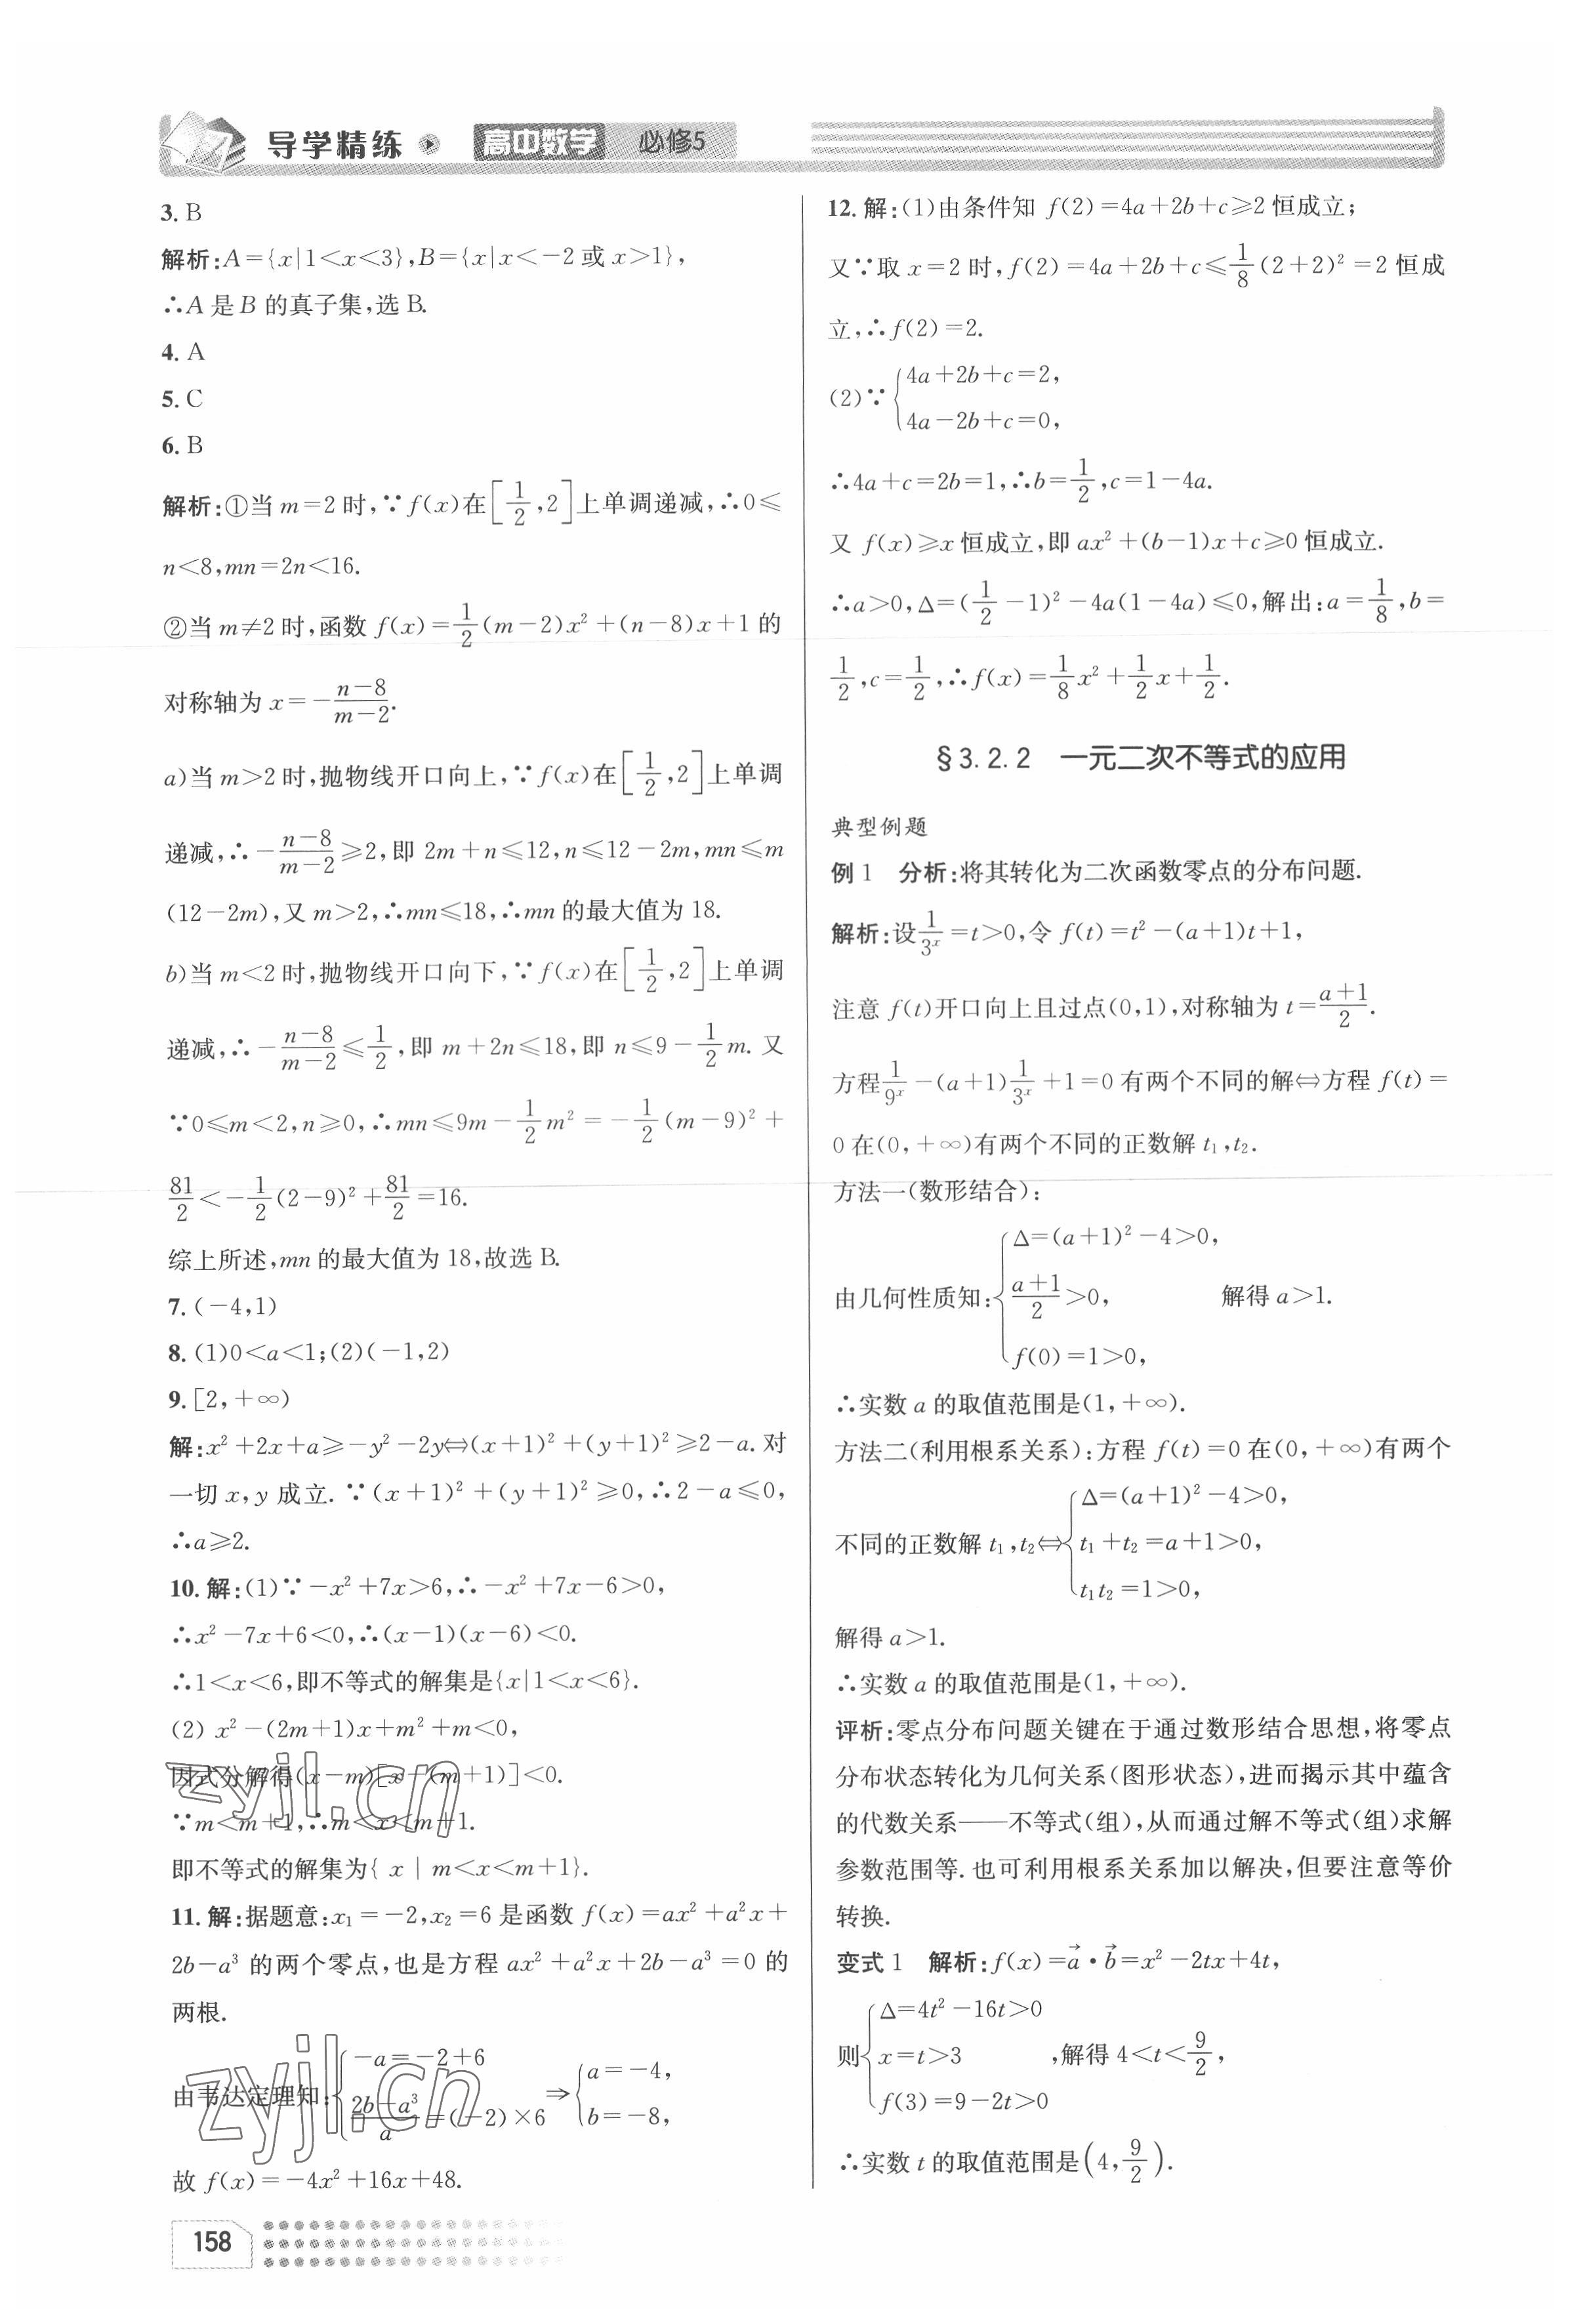 导学精练 高中数学 必修5
3. B
解析:A={x|1<x<3},B={x|x<-2或x>1},
∴A是B的真子集,选B.
4. A
5. C
6. B
解析:①当m=2时,∵f(x)在[1/2,2]上单调递减,∴0≤
n<8,mn=2n<16.
②当m≠2时,函数f(x)=1/2(m-2)x²+(n-8)x+1的
对称轴为x=-(n-8)/(m-2).
a)当m>2时,抛物线开口向上,∵f(x)在[1/2,2]上单调
递减,∴-(n-8)/(m-2)≥2,即2m+n≤12,n≤12-2m,mn≤m
(12-2m),又m>2,∴mn≤18,∴mn的最大值为18.
b)当m<2时,抛物线开口向下,∵f(x)在[1/2,2]上单调
递减,∴-(n-8)/(m-2)≤1/2,即m+2n≤18,即n≤9-1/2m.又
∵0≤m<2,n≥0,∴mn≤9m-1/2m²=-1/2(m-9)²+
81/2<-1/2(2-9)²+81/2=16.
综上所述,mn的最大值为18,故选B.
7. (-4,1)
8. (1)0<a<1;(2)(-1,2)
9. [2,+∞)
解:x²+2x+a≥-y²-2y⇔(x+1)²+(y+1)²≥2-a.对
一切x,y成立.∵(x+1)²+(y+1)²≥0,∴2-a≤0,
∴a≥2.
10. 解:(1)∵-x²+7x>6,∴-x²+7x-6>0,
∴x²-7x+6<0,∴(x-1)(x-6)<0.
∴1<x<6,即不等式的解集是{x|1<x<6}.
(2) x²-(2m+1)x+m²+m<0,
因式分解得(x-m)[x-(m+1)]<0.
∵m<m+1,∴m<x<m+1.
即不等式的解集为{ x | m<x<m+1}.
11. 解:据题意:x₁=-2,x₂=6是函数f(x)=ax²+a²x+
2b-a³的两个零点,也是方程ax²+a²x+2b-a³=0的
两根.
由韦达定理知:{-a=-2+6 (2b-a³)/a=(-2)×6 ⇒{a=-4, b=-8,
故f(x)=-4x²+16x+48.
158
12. 解:(1)由条件知f(2)=4a+2b+c≥2恒成立;
又∵取x=2时,f(2)=4a+2b+c≤1/8(2+2)²=2恒成
立,∴f(2)=2.
(2)∵{4a+2b+c=2, 4a-2b+c=0,
∴4a+c=2b=1,∴b=1/2,c=1-4a.
又f(x)≥x恒成立,即ax²+(b-1)x+c≥0恒成立.
∴a>0,Δ=(1/2-1)²-4a(1-4a)≤0,解出:a=1/8,b=
1/2,c=1/2,∴f(x)=1/8x²+1/2x+1/2.
§3.2.2 一元二次不等式的应用
典型例题
例1 分析:将其转化为二次函数零点的分布问题.
解析:设1/3ˣ=t>0,令f(t)=t²-(a+1)t+1,
注意f(t)开口向上且过点(0,1),对称轴为t=(a+1)/2.
方程1/9ˣ-(a+1)1/3ˣ+1=0有两个不同的解⇔方程f(t)=
0在(0,+∞)有两个不同的正数解t₁,t₂.
方法一(数形结合):
由几何性质知:{Δ=(a+1)²-4>0, (a+1)/2>0, f(0)=1>0, 解得a>1.
∴实数a的取值范围是(1,+∞).
方法二(利用根系关系):方程f(t)=0在(0,+∞)有两个
不同的正数解t₁,t₂⇔{Δ=(a+1)²-4>0, t₁+t₂=a+1>0, t₁t₂=1>0,
解得a>1.
∴实数a的取值范围是(1,+∞).
评析:零点分布问题关键在于通过数形结合思想,将零点
分布状态转化为几何关系(图形状态),进而揭示其中蕴含
的代数关系——不等式(组),从而通过解不等式(组)求解
参数范围等.也可利用根系关系加以解决,但要注意等价
转换.
变式1 解析:f(x)=a⃗•b⃗=x²-2tx+4t,
则{Δ=4t²-16t>0 x=t>3 f(3)=9-2t>0 ,解得4<t<9/2,
∴实数t的取值范围是(4,9/2).
zyjl.cn
zyjl.cn